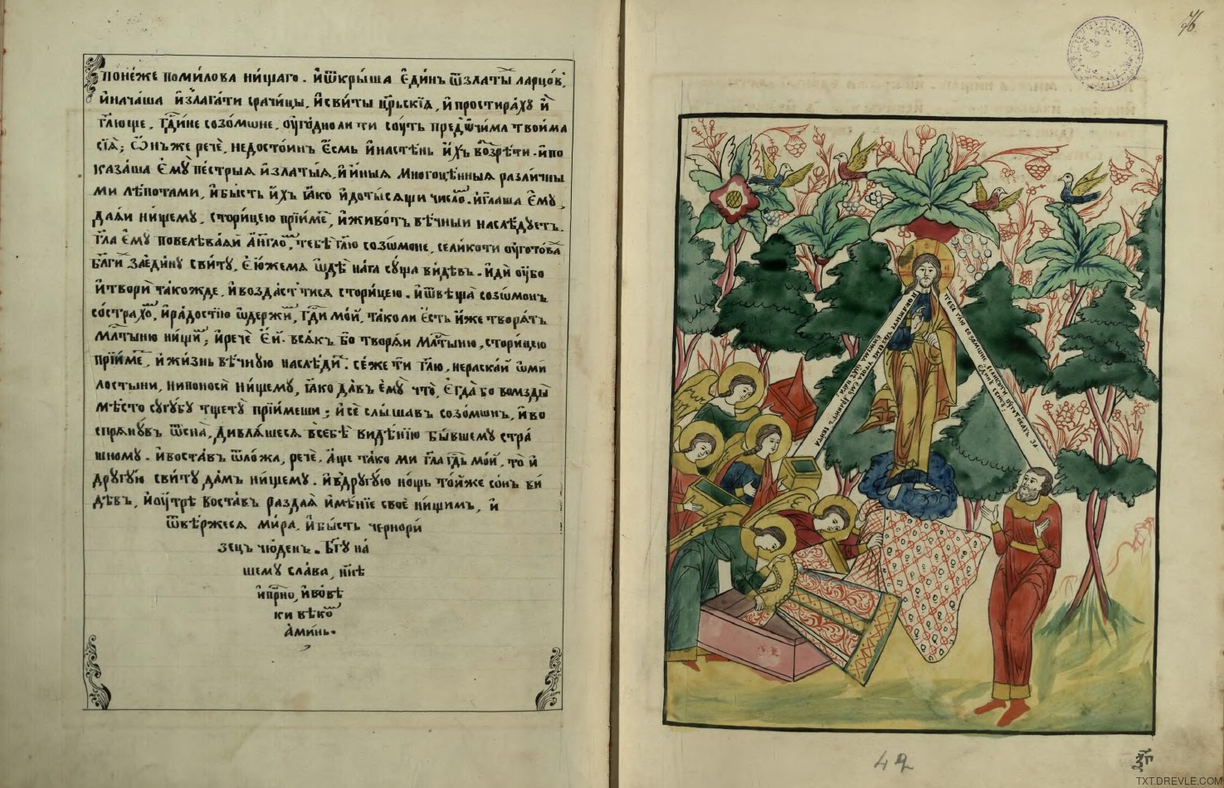 поне́же поми́лова ни́щаго. и҆ ѿкры́ша є҆ди́нъ ѿ златы́ ларцо́в,
и҆ нача́ша и҆злага́ти срачи́цы, и҆ сви́ты цр҃ьскїѧ, и҆ простира́хꙋ и҆
гл҃юще, гдⷭ҇и́не созо́моне, ᲂу҆го́дно ли ти сꙋ́ть пред̾ ѻ҆чи́ма твои́ма
сїѧ̀; Ѻ҆́нъ же речѐ, недосто́инъ є҆́смь и҆ на стѣ́нь и҆́хъ возрѣ́ти. и҆ по
каза́ша є҆мꙋ̀ пе́стрыѧ и҆ златы́ѧ, и҆ и҆ны́ѧ многоцѣ́нныѧ разли́чны
ми лѣ́потами, и҆ бы́сть и҆́хъ ꙗ҆́ко и҆ до ты́сѧщи число̀. и҆ гл҃аша є҆мꙋ̀,
даѧ́и ни́щемꙋ, стори́цею прїи́ме, и҆ живо́тъ вѣ́чныи наслѣ́дꙋетъ.
гл҃а є҆мꙋ̀ повелѣва́ѧй а҆́нг҃ло, тебѣ̀ гл҃ю созо́моне, сели́ко ти ᲂу҆гото́ва
бл҃ги за є҆ди́нꙋ сви́тꙋ, є҆́юже мѧ ѡ҆дѣ̀ на́га сꙋ́ща ви́дѣвъ. и҆дѝ ᲂу҆́бо
и҆ творѝ та́кожде, и҆ возда́стъ ти сѧ стори́цею. и҆ ѿвѣща̀ созо́монъ
со стра́хо, и҆ ра́достїю ѡ҆держи́, гдⷭ҇и мо́й, та́ко ли є҆́сть и҆̀же творѧ́тъ
млⷭ҇тыню ни́щи; и҆ речѐ є҆́й. всѧ́къ бо творѧ́и млⷭ҇тыню, стори́цею
прїи́ме, и҆ жи́знь вѣ́чнꙋю наслѣ́ди. се́ же ти гл҃ю, не раска́й ѡ҆ ми
лостыни, ни поносѝ ни́щемꙋ, ꙗ҆́ко да́въ є҆мꙋ̀ что̀, є҆гда́ бо во мзды̀
мѣ́сто сꙋгꙋ́бꙋ тщетꙋ̀ прїи́меши; и҆ сѐ слы́шавъ созо́монъ, и҆ во
спрѧ́нꙋвъ ѿ сна̀, дивлѧ́шесѧ в себѣ̀ видѣ́нїю бы́вшемꙋ стра́
шномꙋ. и҆ воста́въ ѿ ло́жа, речѐ. а҆́ще та́ко ми гл҃а гдⷭ҇ь мо́й, то и҆
дрꙋгꙋ́ю сви́тꙋ да́мъ ни́щемꙋ. и҆ в дрꙋгꙋ́ю но́щь то́йже со́нъ ви
дѣвъ, и҆ ᲂу҆́трѣ воста́въ раздаѧ̀ и҆мѣ́нїе своѐ ни́щимъ, и҆
ѿве́ржесѧ ми́ра, и҆ бы́сть чернори́
зецъ чю́денъ. Бг҃ꙋ на́
шемꙋ сла́ва, нн҃ѣ
и҆ при́сно, и҆ во вѣ́
ки вѣко́
а҆ми́нь.
76
42
TXT.DREVLE.COM